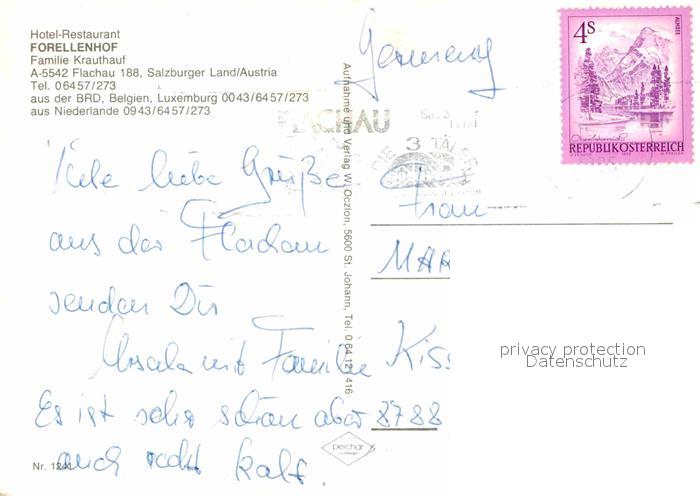 Hotel-Restaurant
FORELLENHOF
Familie Krauthauf
A-5542 Flachau 188, Salzburger Land/Austria
Tel. 06457/273
aus der BRD, Belgien, Luxemburg 0043/6457/273
aus Niederlande 0943/6457/273
Germany
4S
ALMSEE
REPUBLIK ÖSTERREICH
FLACHAU
DIE 3 TÄLER
Aufnahme und Verlag W. Oczlon, 5600 St. Johann, Tel. 0 64 12 / 416
Viele liebe Grüße
aus der Flachau
senden Dir
Ursula mit Familie
Es ist sehr schön aber
auch recht kalt
Frau
MAR
Kis
8788
privacy protection
Datenschutz
Nr. 1241